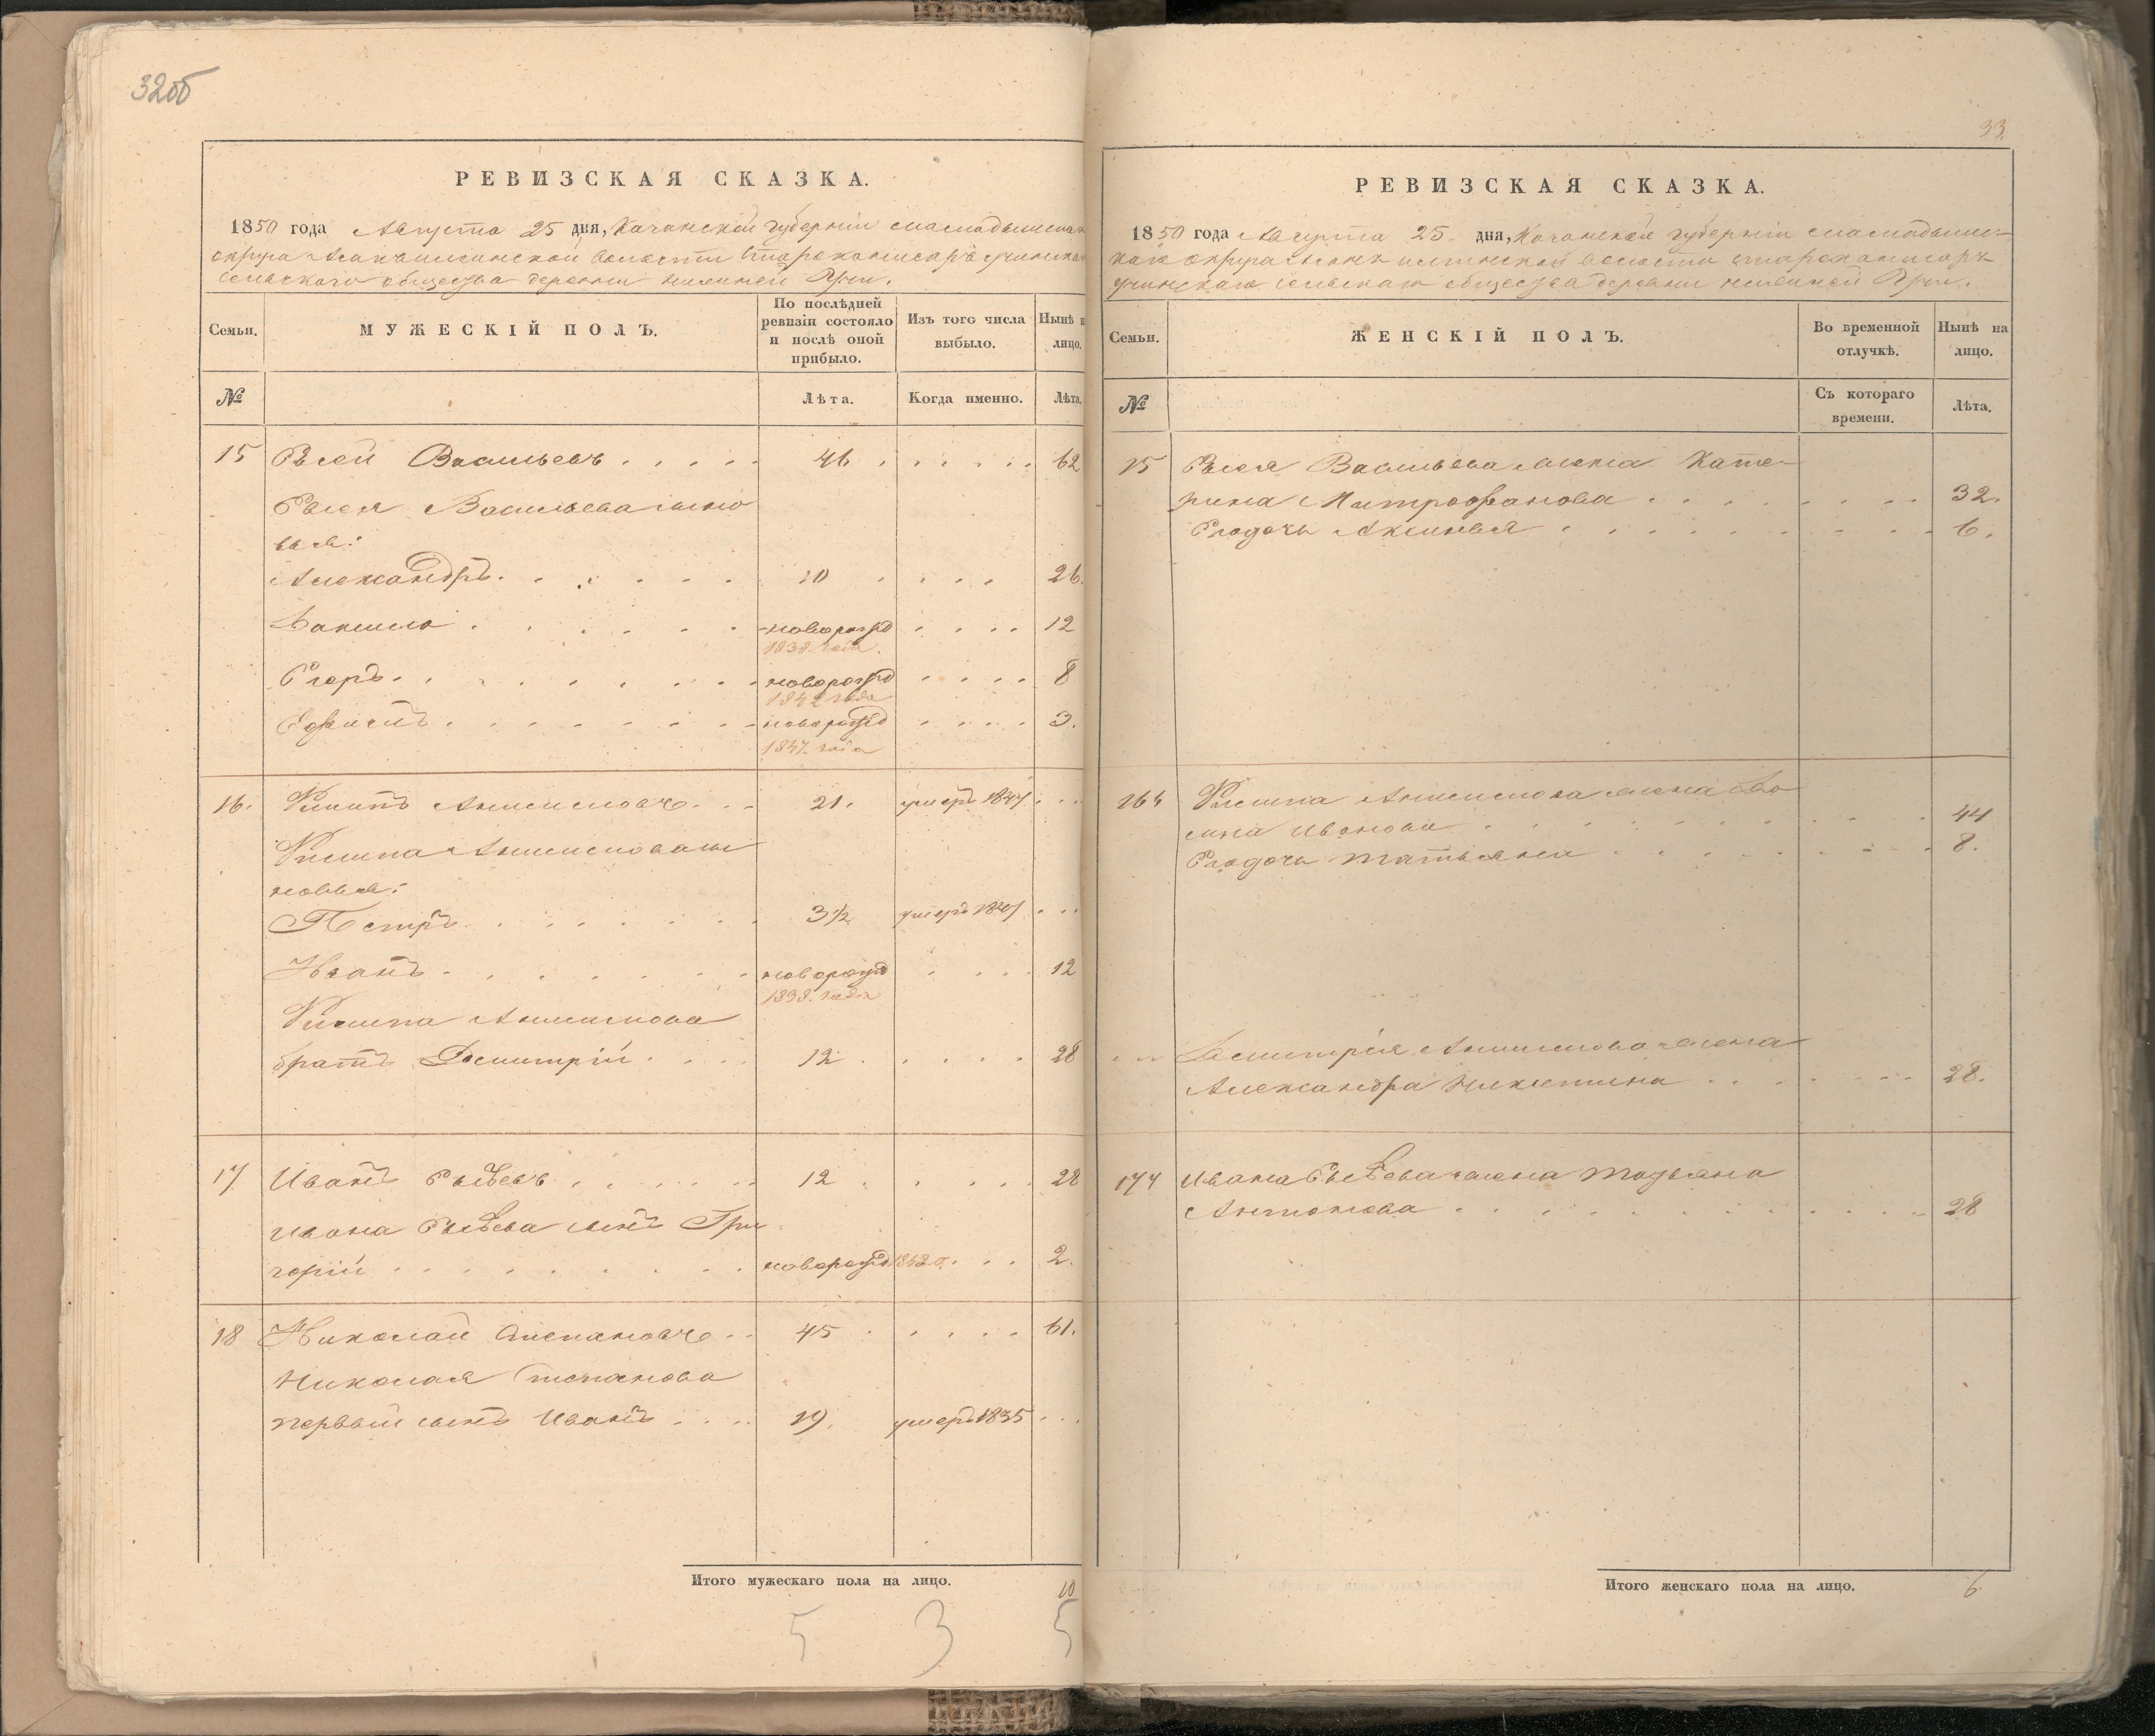 32об
РЕВИЗСКАЯ СКАЗКА.
1850 года Августа 25 дня, Казанской губерніи
округа волости
сельскаго общества деревни
Семьи.
МУЖЕСКІЙ ПОЛЪ.
По послѣдней ревизіи состояло и послѣ оной прибыло.
Изъ того числа выбыло.
Нынѣ н лицо.
№
Лѣта.
Когда именно.
Лѣта.
15 Васильевъ . . . . . 46 . . . . . . 62
Васильева сыно
вья:
Александръ . . . . . . 10 . . . . 26.
Данило . . . . . . новорожд . . . . 12
1838. года.
Егоръ . . . . . . . новорожд . . . . 8
1842 года
. . . . . . . новорожд . . . . 3.
1847. года
16. Филипъ Анисимовъ . . . 21. умеръ 1847 . . .
Филипа Анисимова сы
новья:
Петръ . . . . . . . 3½ умеръ . . .
Иванъ . . . . . . . новорожд . . . . 12
1838. года
Филипа Анисимова
братъ Дмитрій . . . . 12 . . . . . 28
17 Иванъ . . . . . . 12 . . . . . 28
Ивана сынъ Гри
горій . . . . . . . . . новорожд . . . 2.
18 Николай Степановъ . . 45 . . . . . 61.
Николая Степанова
первый сынъ Иванъ . . . . 19. умеръ 1835 . . .
Итого мужескаго пола на лицо. 10
5 3 5
33.
РЕВИЗСКАЯ СКАЗКА.
1850 года Августа 25 дня, Казанской губерніи
каго округа волости
сельскаго общества деревни
Семьи.
ЖЕНСКІЙ ПОЛЪ.
Во временной отлучкѣ.
Нынѣ на лицо.
№
Съ котораго времени.
Лѣта.
15 Васильева жена Кате-
рина Митрофанова . . . . . . . . 32.
Его дочь Аксинья . . . . . . . . . 6.
16 Филипа Анисимова жена До
мна Иванова . . . . . . . . . 44
Его дочь Татьяна . . . . . . . . 8.
Дмитрія Анисимова жена
Александра Никитина . . . . . . . 28.
17 Ивана жена Татьяна
Антонова . . . . . . . . . . . 28
Итого женскаго пола на лицо. 6